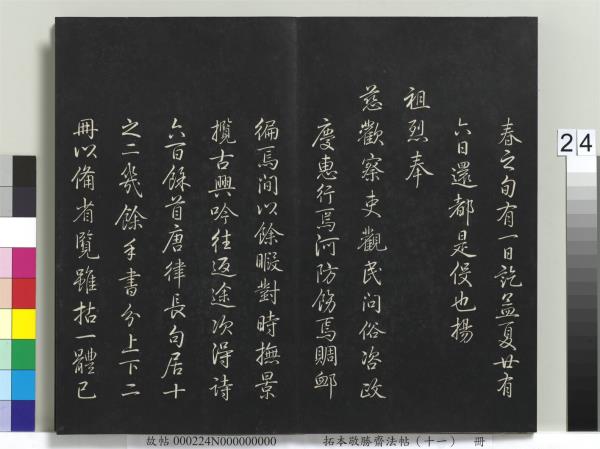 春之旬有一日訖孟夏廿有
六日還都是役也揚
祖烈奉
慈歡察吏觀民問俗咨政
慶惠行焉河防飭焉賙䘏
徧焉間以餘暇對時撫景
攬古興吟往返途次得詩
六百餘首唐律長句居十
之二幾餘手書分上下二
冊以備省覽雖拈一體已
24
故帖 000224N000000000 拓本敬勝齋法帖（十一） 冊